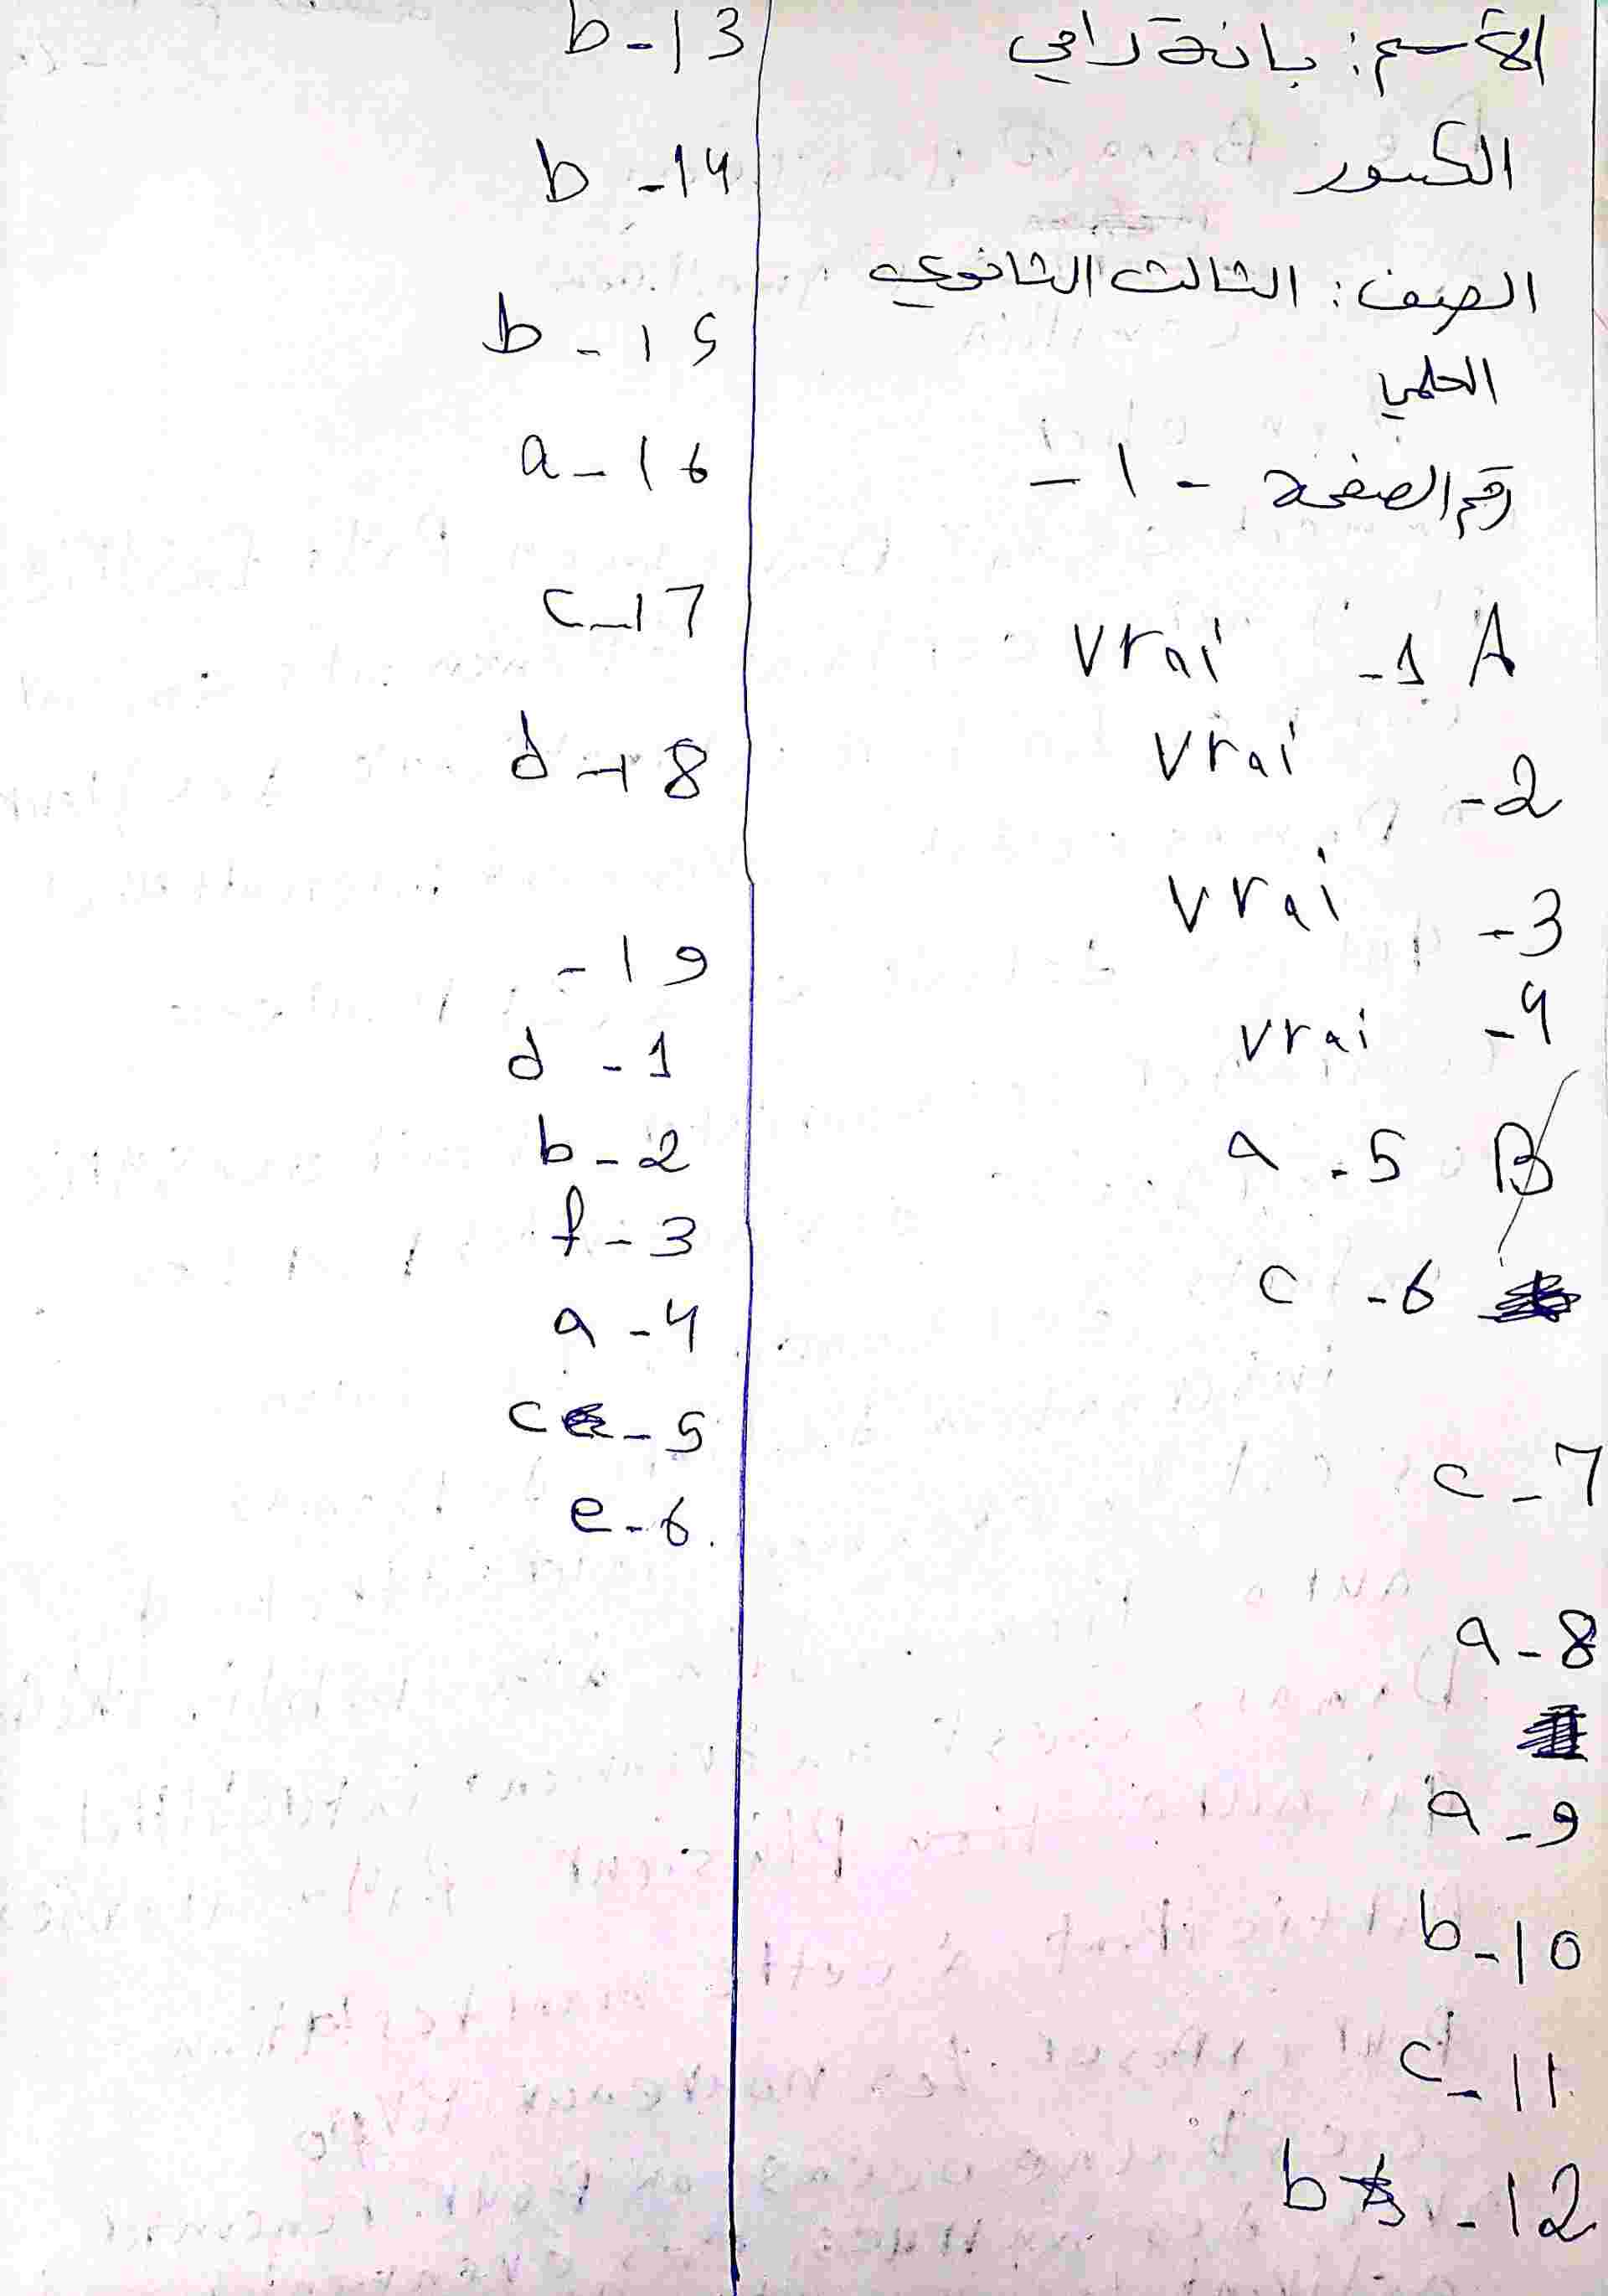 الاسم: بانة رامي
الكسور
الصف: الثالث الثانوي
العلمي
رقم الصفحة - ١ -
A 1- vrai
2- vrai
3- vrai
4- vrai
B 5- a
6- c
7- c
8- a
9- a
10- b
11- c
12- b
13- b
14- b
15- b
16- a
17- c
18- d
19-
1- d
2- b
3- f
4- a
5- c
6- e